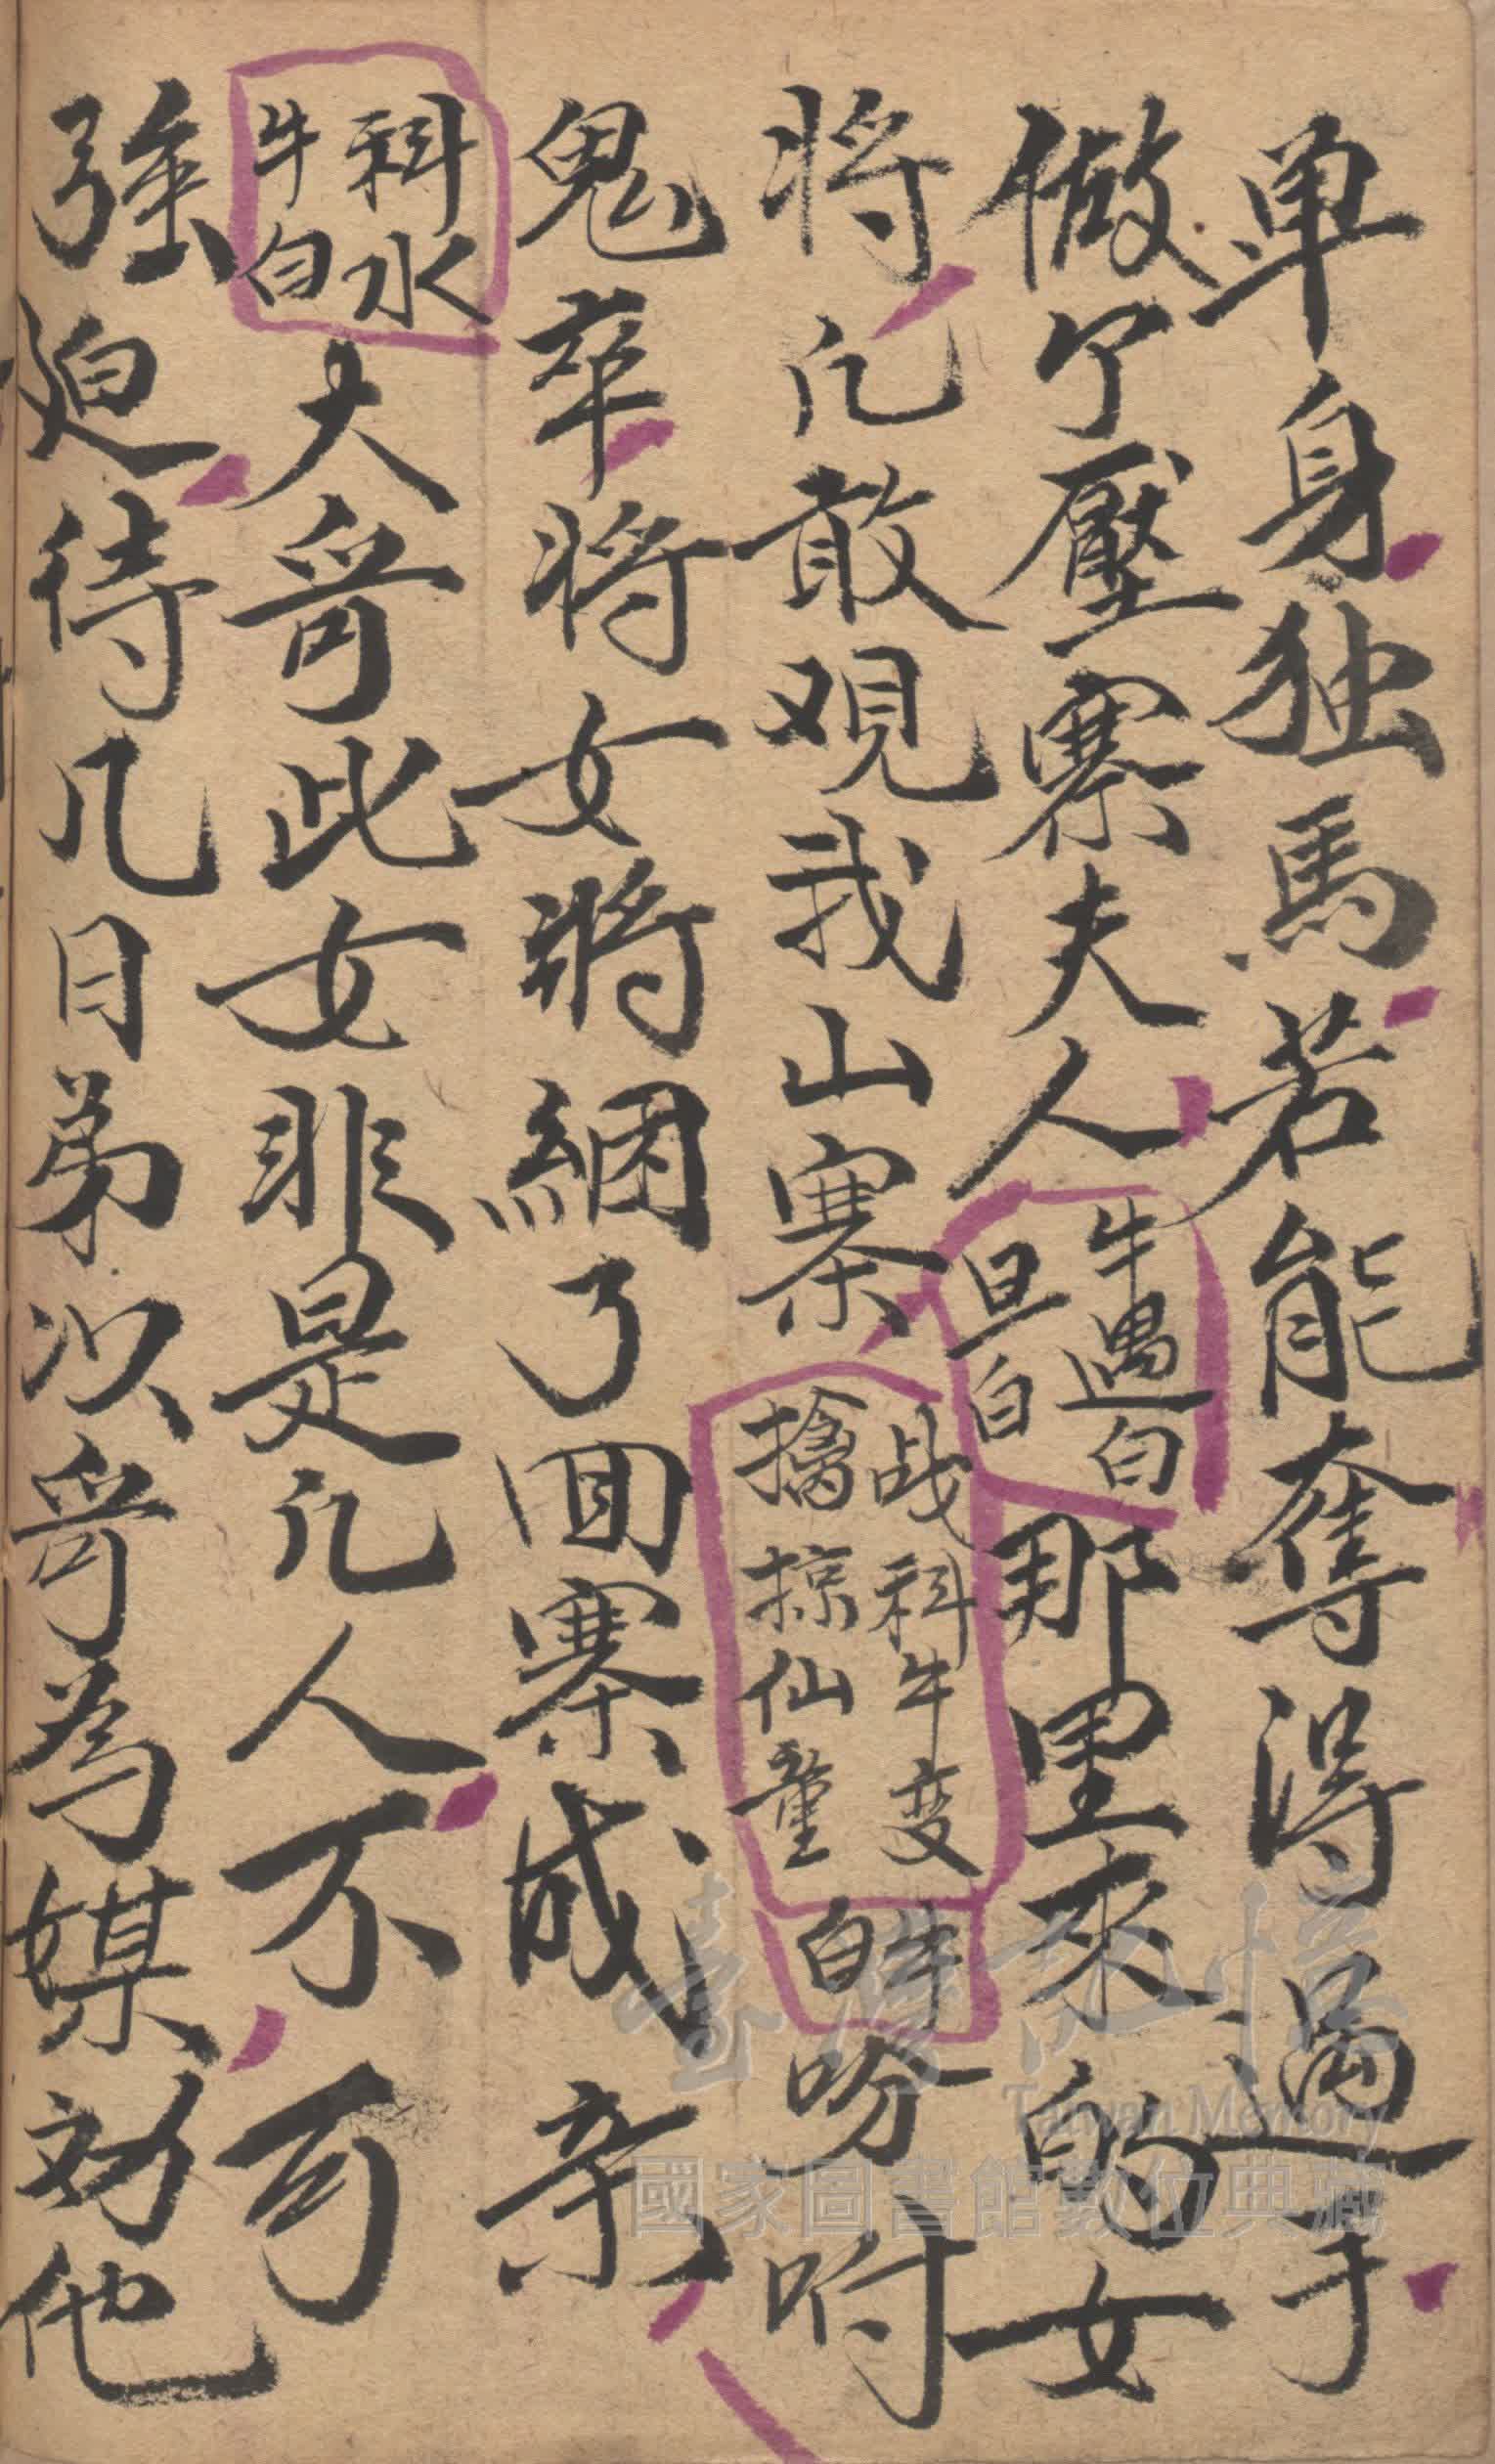 单身独馬若能奪得過手
做个壓寨夫人牛過白旦白那里來的女
将凢敢观我山寨战科牛变擒掠仙童牛白吩咐
鬼卒将女将綑了回寨成亲
科水牛白大哥此女非是凢人不可
強迫待几日弟以哥為媒劝他
臺灣記憶
Taiwan Memory
國家圖書館數位典藏